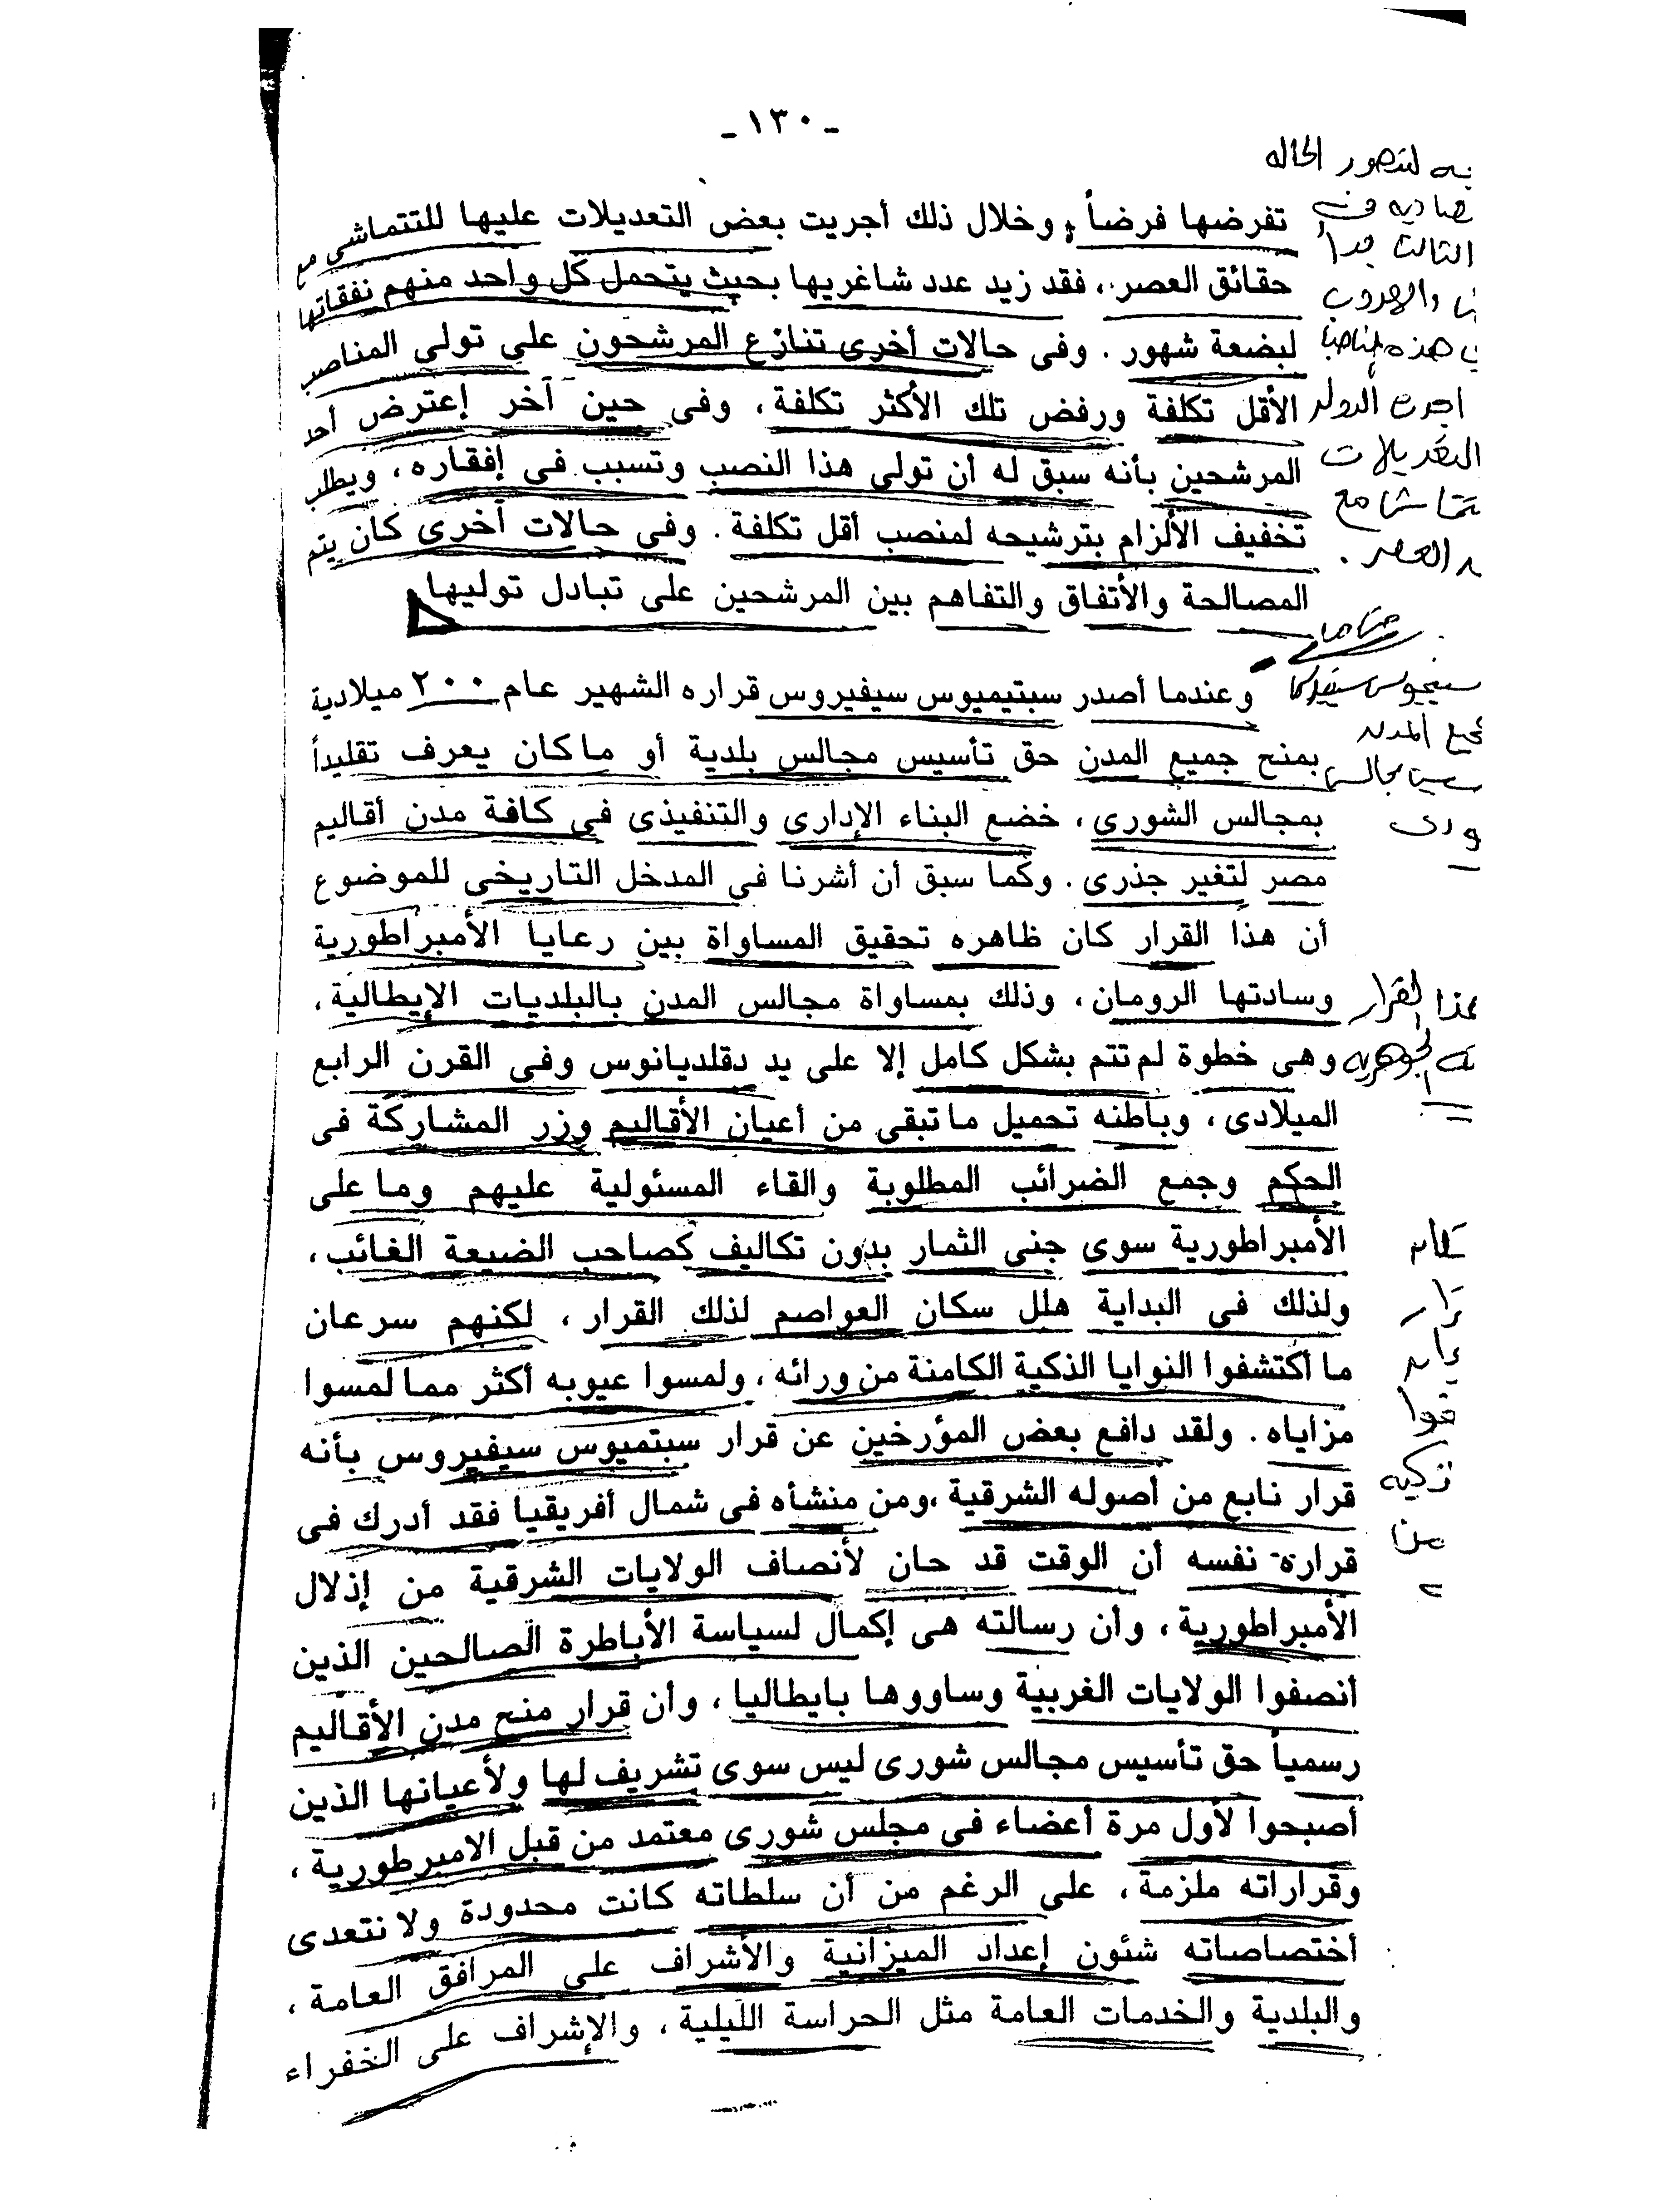 -١٣٠-
تفرضها فرضاً، وخلال ذلك أجريت بعض التعديلات عليها للتتماشى مع
حقائق العصر، فقد زيد عدد شاغريها بحيث يتحمل كل واحد منهم نفقاتها
لبضعة شهور. وفى حالات أخرى تنازع المرشحون على تولى المناصب
الأقل تكلفة ورفض تلك الأكثر تكلفة، وفى حين آخر إعترض أحد
المرشحين بأنه سبق له أن تولى هذا النصب وتسبب فى إفقاره، ويطلب
تخفيف الألزام بترشيحه لمنصب أقل تكلفة. وفى حالات أخرى كان يتم
المصالحة والأتفاق والتفاهم بين المرشحين على تبادل توليها
وعندما أصدر سبتيميوس سيفيروس قراره الشهير عام ٢٠٠ ميلادية
بمنح جميع المدن حق تأسيس مجالس بلدية أو ماكان يعرف تقليداً
بمجالس الشورى، خضع البناء الإدارى والتنفيذى فى كافة مدن أقاليم
مصر لتغير جذرى. وكما سبق أن أشرنا فى المدخل التاريخى للموضوع
أن هذا القرار كان ظاهره تحقيق المساواة بين رعايا الأمبراطورية
وسادتها الرومان، وذلك بمساواة مجالس المدن بالبلديات الإيطالية،
وهى خطوة لم تتم بشكل كامل إلا على يد دقلديانوس وفى القرن الرابع
الميلادى، وباطنه تحميل ماتبقى من أعيان الأقاليم وزر المشاركة فى
الحكم وجمع الضرائب المطلوبة والقاء المسئولية عليهم وما على
الأمبراطورية سوى جنى الثمار بدون تكاليف كصاحب الضيعة الغائب،
ولذلك فى البداية هلل سكان العواصم لذلك القرار، لكنهم سرعان
ما أكتشفوا النوايا الذكية الكامنة من ورائه، ولمسوا عيوبه أكثر مما لمسوا
مزاياه. ولقد دافع بعض المؤرخين عن قرار سبتميوس سيفيروس بأنه
قرار نابع من أصوله الشرقية، ومن منشأه فى شمال أفريقيا فقد أدرك فى
قراره نفسه أن الوقت قد حان لأنصاف الولايات الشرقية من إذلال
الأمبراطورية، وأن رسالته هى إكمال لسياسة الأباطرة الصالحين الذين
أنصفوا الولايات الغربية وساووها بايطاليا، وأن قرار منح مدن الأقاليم
رسمياً حق تأسيس مجالس شورى ليس سوى تشريف لها ولأعيانها الذين
أصبحوا لأول مرة أعضاء فى مجلس شورى معتمد من قبل الامبرطورية،
وقراراته ملزمة، على الرغم من أن سلطاته كانت محدودة ولا نتعدى
أختصاصاته شئون إعداد الميزانية والأشراف على المرافق العامة،
والبلدية والخدمات العامة مثل الحراسة الليلية، والإشراف على الخفراء
به لتصور الحاله
الثالث
هذه
الدولة
التعديلات
مع
العصر.
جميع المدن
مجالس
القرار
الجوهريه